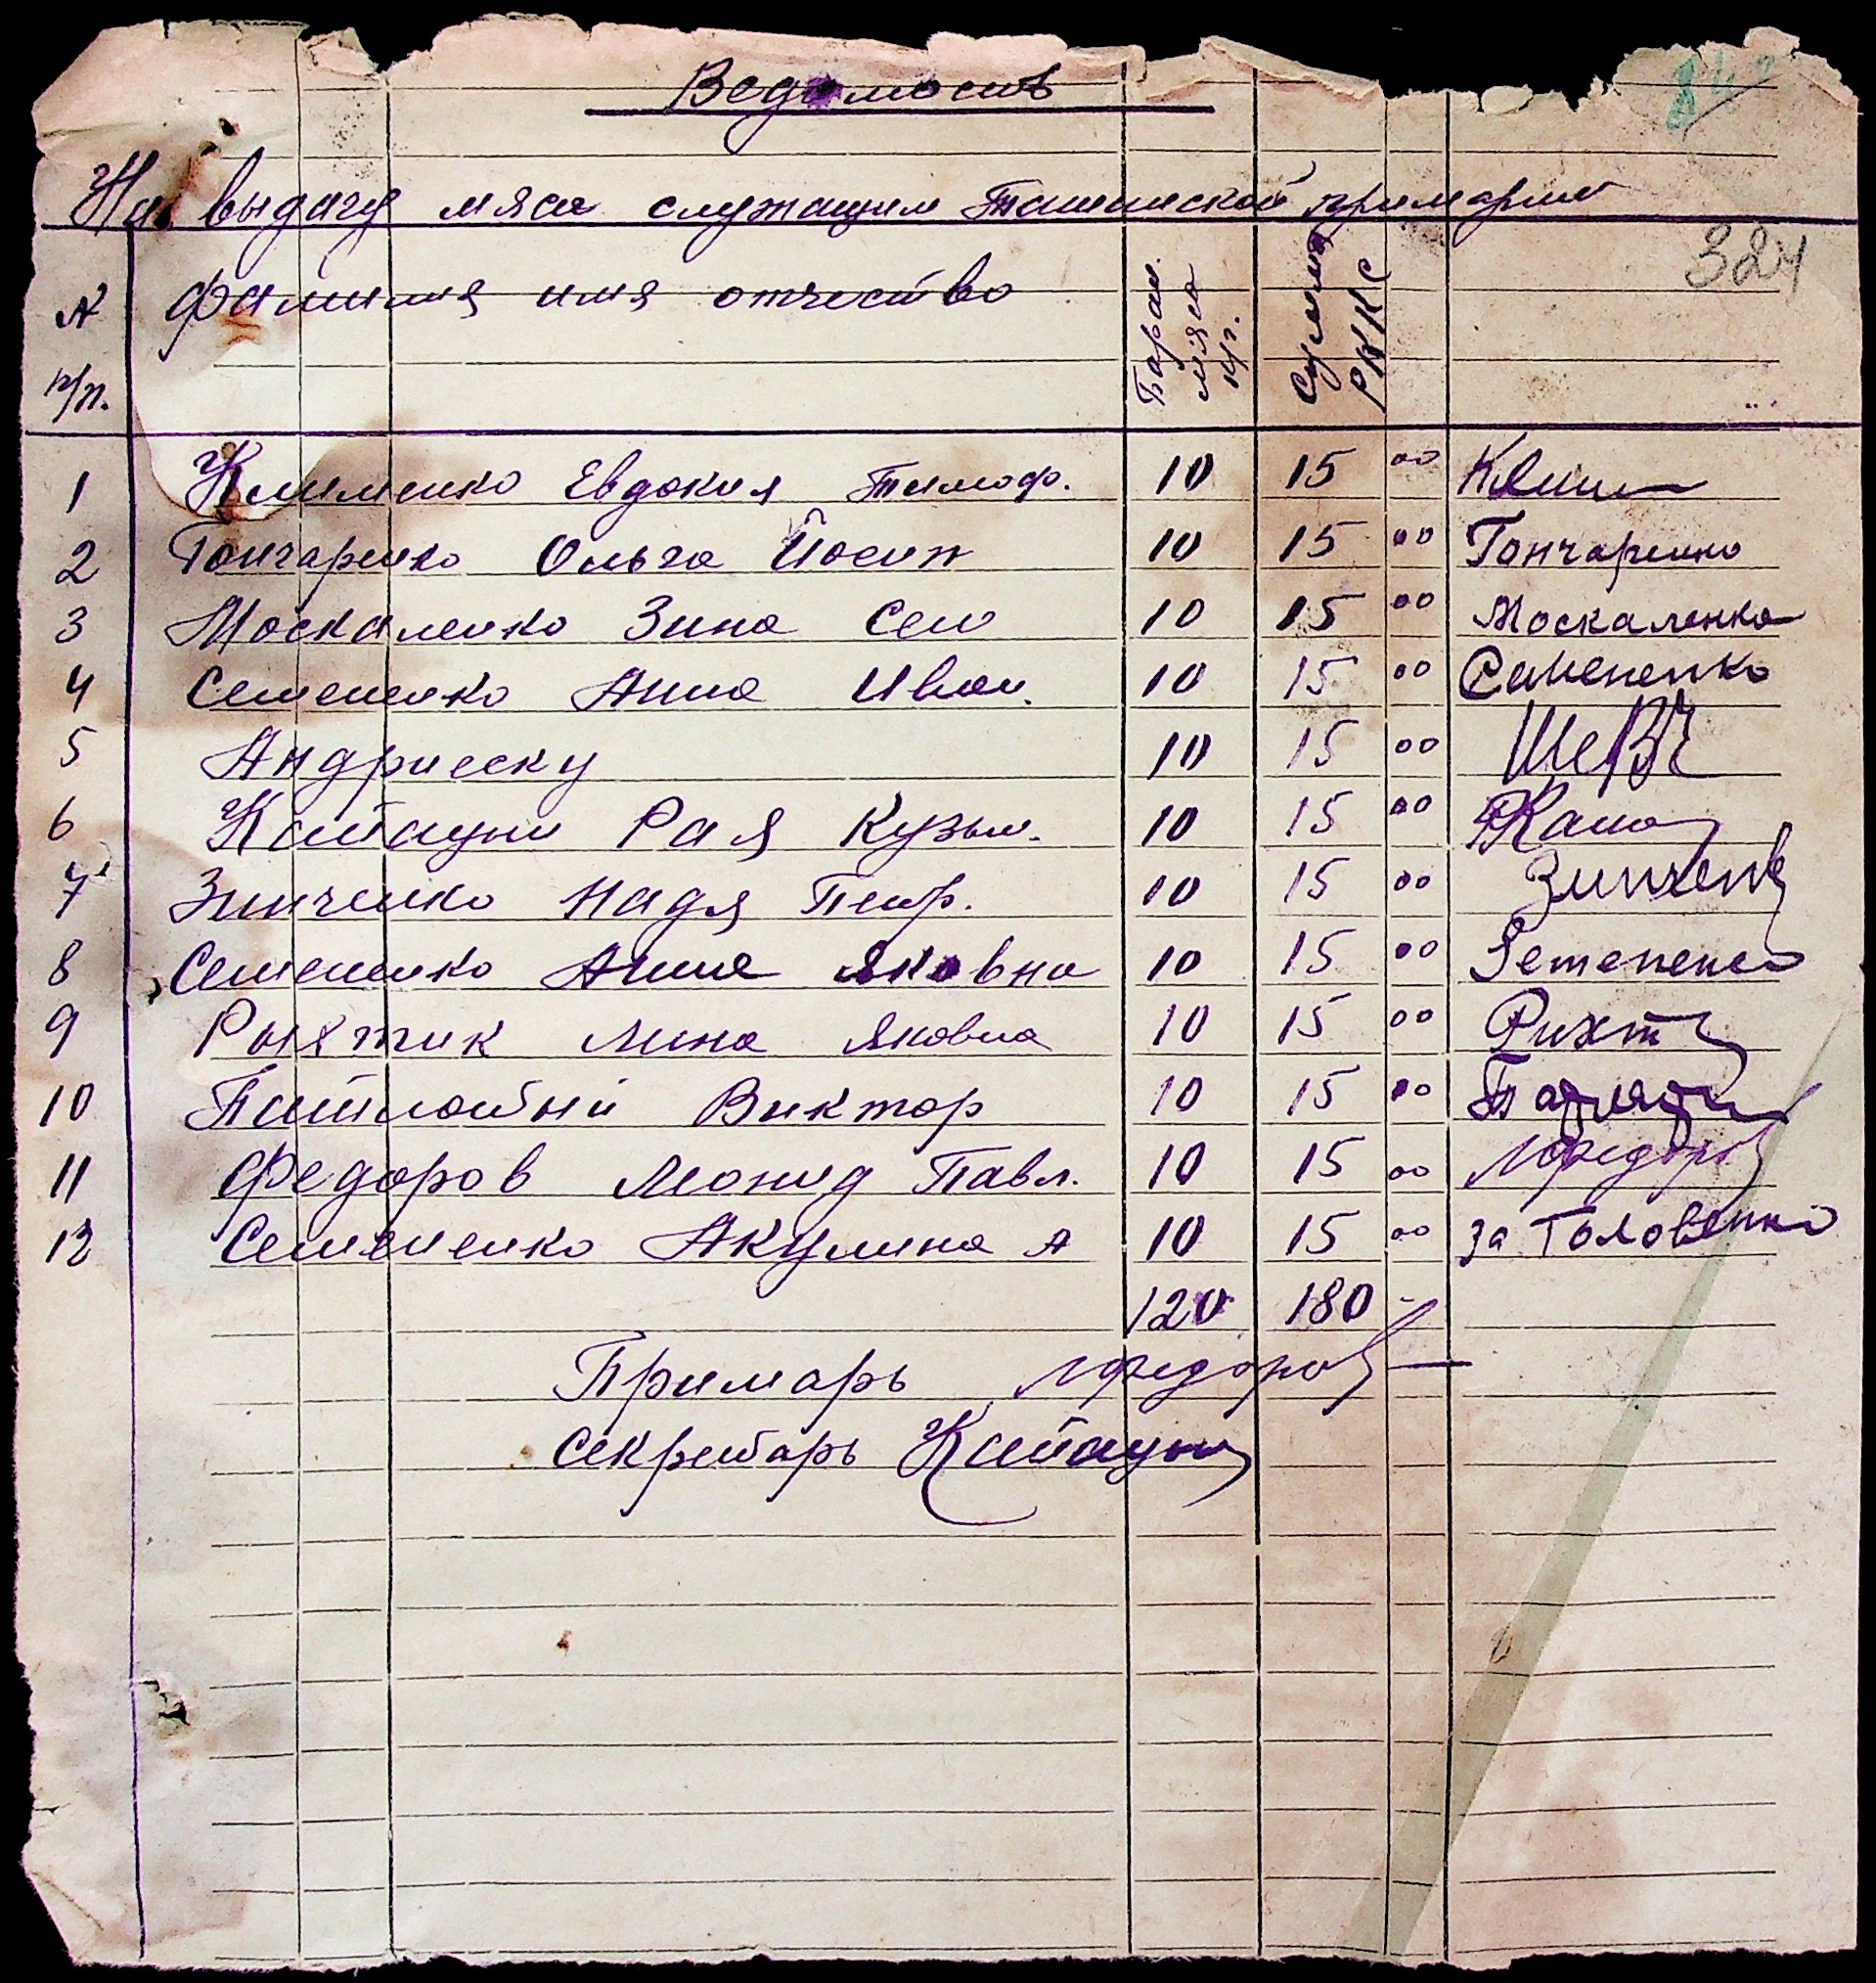 Ведомость
На выдачу мяса служащим Ташинской примарии
324
N п/п. Фамилия имя отчество Баран. мяса кг. Сумма РККС
1 Клименко Евдокия Тимоф. 10 15 00 Клим
2 Гончаренко Ольга Йосип 10 15 00 Гончаренко
3 Москаленко Зина Сем 10 15 00 Москаленко
4 Семененко Анна Иван. 10 15 00 Семененко
5 Андриеску 10 15 00 ШеВч
6 Катаущ Рая Кузьм. 10 15 00
7 Зинченко Надя Петр. 10 15 00 Зинченко
8 Семененко Анна Яковна 10 15 00 Семененко
9 Рыхтик Лина Яковна 10 15 00 Рихт
10 Виктор 10 15 00
11 Федоров Леонид Павл. 10 15 00 ЛФедоров
12 Семененко Акулина А 10 15 00 за Головенко
120 180 -
Примарь ЛФедоров
Секретарь